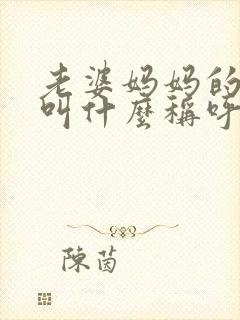 老婆妈妈的
叫什麼稱呼
陳茵